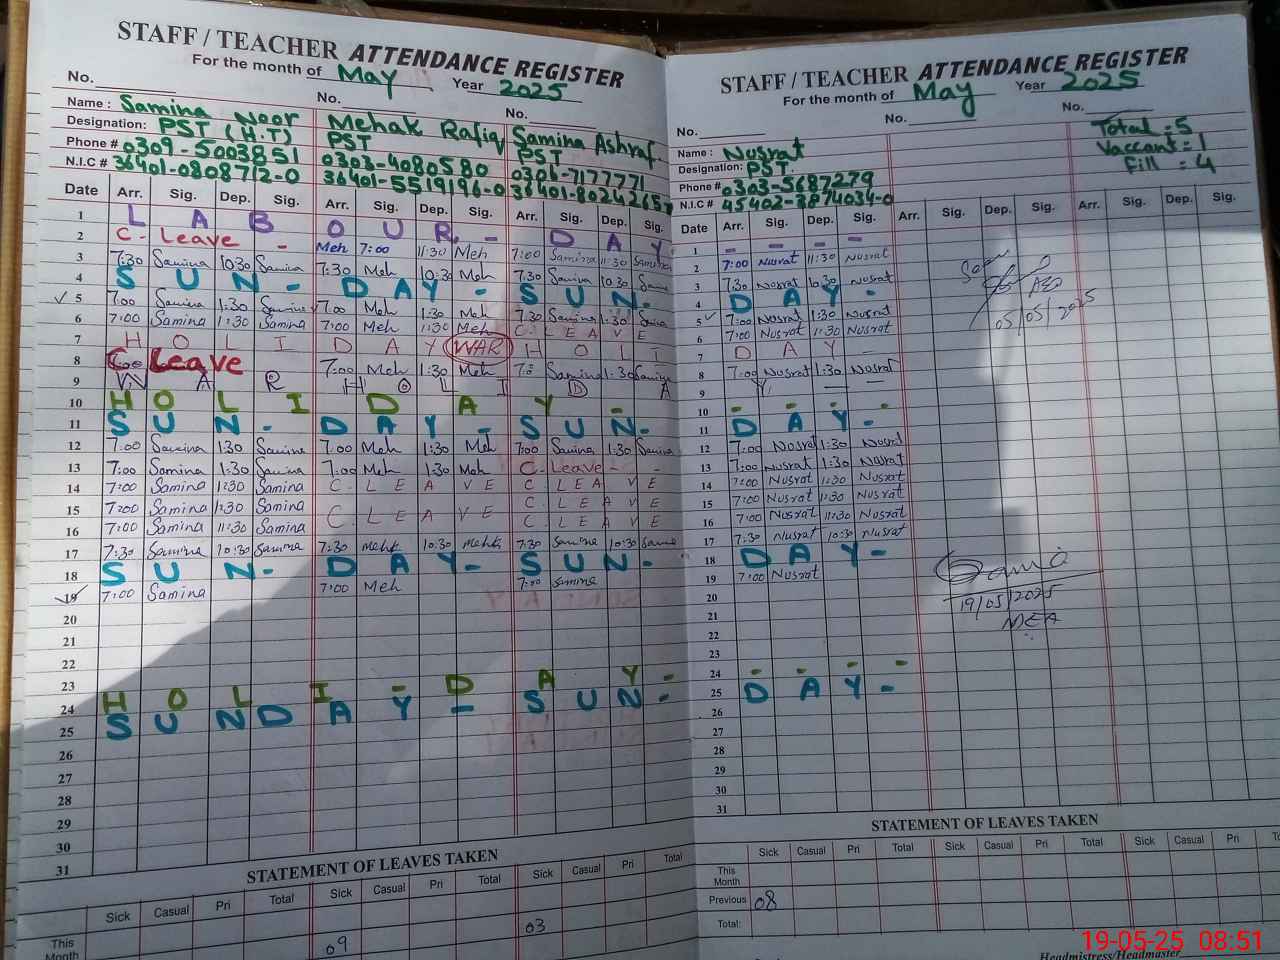 STAFF / TEACHER ATTENDANCE REGISTER
For the month of May Year 2025
No. No. No.
Name : Samina Noor Mehak Rafiq Samina Ashraf.
Designation: PST (H.T) PST PST
Phone # 0309-5003851 0303-4080580 0306-7177771
N.I.C # 36401-0808712-0 36401-5519196-0 36401-8024265
Date Arr. Sig. Dep. Sig. Arr. Sig. Dep. Sig. Arr. Sig. Dep. Sig.
1 L A B O U R - D A Y
2 C- Leave - Meh 7:00 11:30 Meh 7:00 Samina 11:30 Samina
3 7:30 Samina 10:30 Samina 7:30 Meh 10:30 Meh 7:30 Samina 10:30
4 S U N - D A Y - S U N -
5 7:00 Samina 1:30 Samina 7:00 Meh 1:30 Meh 7:30 Samina 1:30
6 7:00 Samina 1:30 Samina 7:00 Meh 11:30 Meh C L E A V E
7 H O L I D A Y WAR H O L I
8 C Leave 7:00 Meh 1:30 Meh Samina 1:30 Samina
9 W A R H O L I D A
10 H O L I D A Y -
11 S U N - D A Y - S U N -
12 7:00 Samina 1:30 Samina 7:00 Meh 1:30 Meh 7:00 Samina 1:30 Samina
13 7:00 Samina 1:30 Samina 7:00 Meh 1:30 Meh C- Leave - -
14 7:00 Samina 1:30 Samina C - L E A V E C L E A V E
15 7:00 Samina 1:30 Samina C L E A V E
16 7:00 Samina 11:30 Samina C - L E A V E C L E A V E
17 7:30 Samina 10:30 Samina 7:30 Mehk 10:30 Mehk 7:30 Samina 10:30
18 S U N - D A Y - S U N -
19 7:00 Samina 7:00 Meh 7:00 Samina
20
21
22
23 H O L I - D A Y -
24 S U N D A Y - S U N -
25
26
27
28
29
30
31
STATEMENT OF LEAVES TAKEN
Sick Casual Pri Total Sick Casual Pri Total Sick Casual Pri Total
This Month 09 03
STAFF / TEACHER ATTENDANCE REGISTER
For the month of May Year 2025
No. No. No.
Total = 5
Vaccant = 1
Fill = 4
Name : Nusrat
Designation: PST.
Phone # 0303-5687279
N.I.C # 45402-3874034-0
Arr. Sig. Dep. Sig. Arr. Sig. Dep. Sig. Arr. Sig. Dep. Sig.
1 - - - -
2 7:00 Nusrat 11:30 Nusrat
3 7:30 Nusrat 10:30 Nusrat
4 D A Y -
5 7:00 Nusrat 1:30 Nusrat
6 7:00 Nusrat 11:30 Nusrat
7 D A Y -
8 7:00 Nusrat 1:30 Nusrat
9 Y - -
10 - - - -
11 D A Y -
12 7:00 Nusrat 1:30 Nusrat
13 7:00 Nusrat 1:30 Nusrat
14 7:00 Nusrat 11:30 Nusrat
15 7:00 Nusrat 11:30 Nusrat
16 7:00 Nusrat 11:30 Nusrat
17 7:30 Nusrat 10:30 Nusrat
18 D A Y -
19 7:00 Nusrat
20
21
22
23
24 - - - -
25 D A Y -
26
27
28
29
30
31
AEO
05/05/2025
19/05/2025
MEA
STATEMENT OF LEAVES TAKEN
Sick Casual Pri Total Sick Casual Pri Total Sick Casual Pri
This Month
Previous 08
Total:
Headmistress/Headmaster
19-05-25 08:51